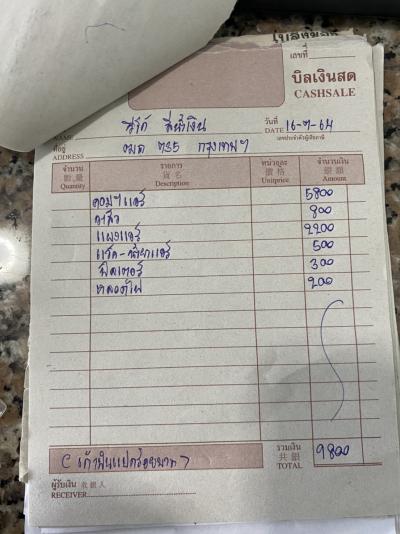 เลขที่
บิลเงินสด
CASHSALE
NAME วีโก้ สีน้ำเงิน วันที่ DATE 16-7-64
เลขประจำตัวผู้เสียภาษี
ที่อยู่ ADDRESS 735 กรุงเทพฯ
จำนวน 數量 Quantity รายการ 貨名 Description หน่วยละ 價格 Unitprice จำนวนเงิน 銀額 Amount
คอมฯแอร์ 5800
วาล์ว 800
แผงแอร์ 2200
500
ฟิลเตอร์ 300
200
(เก้าพันแปดร้อยบาท) รวมเงิน 共銀 TOTAL 9800
ผู้รับเงิน 收銀人
RECEIVER